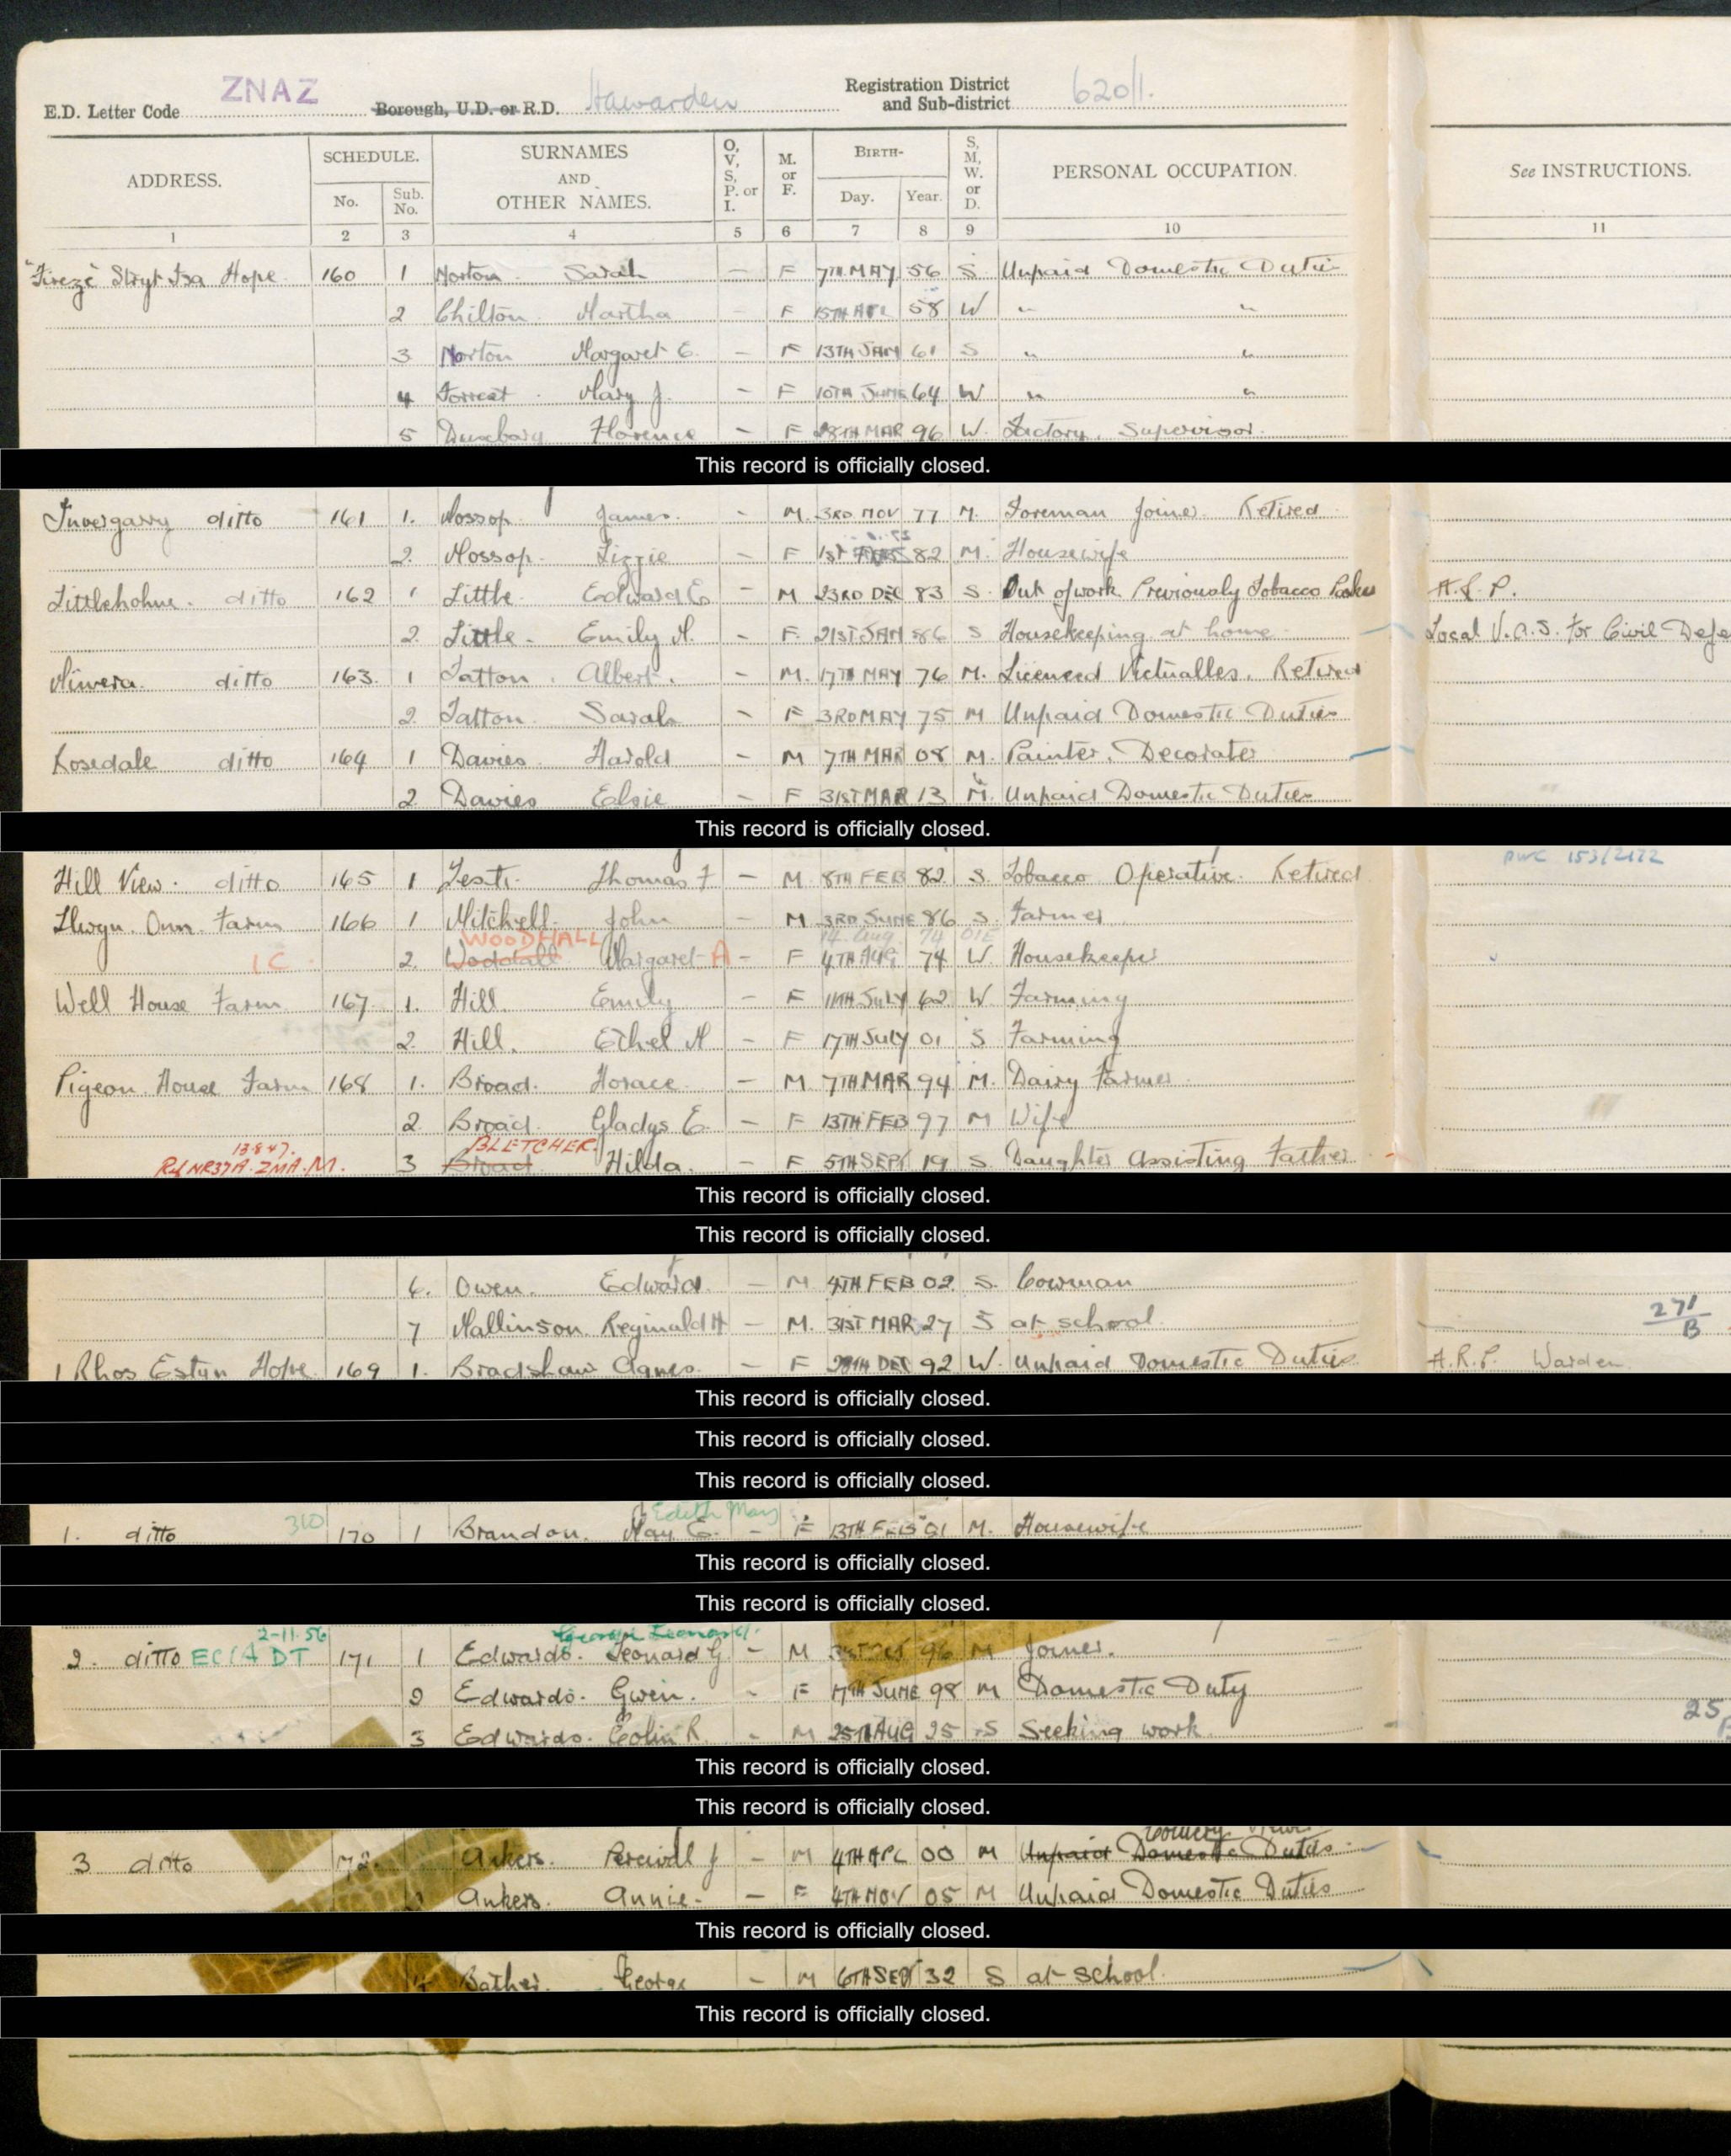 E.D. Letter Code ZNAZ Borough, U.D. or R.D. Hawarden Registration District and Sub-district 620/1.
ADDRESS. SCHEDULE. No. Sub. No. SURNAMES AND OTHER NAMES. O, V, S, P. or I. M. or F. BIRTH- Day. Year. S, M, W. or D. PERSONAL OCCUPATION. See INSTRUCTIONS.
1 2 3 4 5 6 7 8 9 10 11
Stryt Isa Hope. 160 1 Norton Sarah — F 7TH MAY 56 S Unpaid Domestic Duties
2 Chilton. Martha — F 15TH APL 58 W " "
3 Norton Margaret E. — F 13TH JAN 61 S " "
4 Forrest. Mary J. — F 10TH JUNE 64 W " "
5 Duxbury Florence — F 28TH MAR 96 W. Factory. Supervisor.
This record is officially closed.
Invergarry ditto 161 1. Mossop James. - M. 3RD NOV 77 M. Foreman Joiner. Retired
2. Mossop. Lizzie — F 1ST 82 M. Housewife
Littleholme. ditto 162 1 Little. Edward E — M 23RD DEC 83 S. Out of work Previously Tobacco A.R.P.
2. Little. Emily M. — F. 21ST JAN 86 S Housekeeping at home Local V.A.S. for Civil Defe
ditto 163. 1 Tatton. Albert. — M. 17TH MAY 76 M. Licensed Victualler. Retired
2. Tatton. Sarah — F 3RD MAY 75 M Unpaid Domestic Duties
Rosedale ditto 164 1 Davies. Harold — M 7TH MAR 08 M. Painter. Decorator
2. Davies Elsie — F 31ST MAR 13 M. Unpaid Domestic Duties
This record is officially closed.
153/2122
Hill View. ditto 165 1 Thomas F — M. 8TH FEB 82 S. Tobacco Operative. Retired.
Llwyn. Onn. Farm 166 1 Mitchell. John — M 3RD JUNE 86 S. Farmer
WOODHALL 14. Aug 74
1C. 2. Woodall Margaret A — F 4TH AUG 74 W Housekeeper
Well House Farm 167 1. Hill. Emily — F 11TH JULY 62 W Farming
2. Hill. Ethel M — F 17TH JULY 01 S Farming
Pigeon House Farm 168 1. Broad. Horace — M. 7TH MAR 94 M. Dairy Farmer.
2. Broad. Gladys E. — F 13TH FEB 97 M Wife
13.8.47. BLETCHER.
Ref NR37A. ZMA.M. 3 Broad Hilda. — F 5TH SEPT 19 S. Daughter Assisting Father
This record is officially closed.
This record is officially closed.
6. Owen. Edward. — M 4TH FEB 02. S. Cowman
7 Mallinson. Reginald H — M. 31ST MAR 27 S at school. 271/B
1 Rhos Estyn Hope. 169 1. Bradshaw Agnes. — F 28TH DEC 92 W. Unpaid Domestic Duties A.R.P. Warden
This record is officially closed.
This record is officially closed.
This record is officially closed.
310 Edith Mary
1. ditto 170 1 Brandon. May E. — F 13TH FEB 81 M. Housewife
This record is officially closed.
This record is officially closed.
2-11.56 George Leonard.
2. ditto DT 171 1 Edwards. Leonard G — M 96 M Joiner.
2 Edwards. Gwen. - F 17TH JUNE 98 M Domestic Duty
3 Edwards. Colin R. - M 25TH AUG 25 S Seeking work. 25
This record is officially closed.
This record is officially closed.
3 ditto 172. Ankers. Percivell J — M 4TH APL 00 M Unpaid Domestic Duties
Ankers. Annie — F 4TH NOV 05 M Unpaid Domestic Duties
This record is officially closed.
Bather. George — M 6TH SEPT 32 S at school.
This record is officially closed.